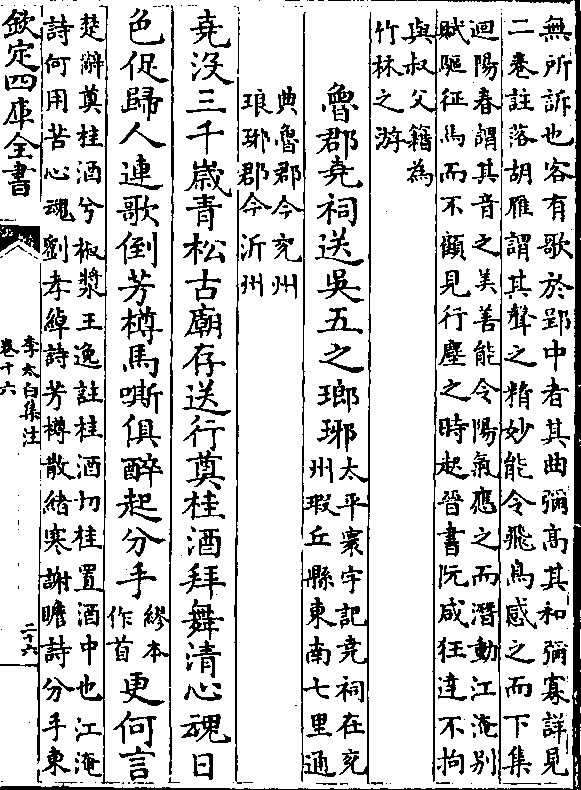 無所訴也客有歌於郢中者其曲彌髙其和彌寡詳見
二巻註落胡雁謂其聲之精妙能令飛鳥感之而下集
迴陽春謂其音之美善能令陽氣應之而潛動江淹别
賦驅征馬而不顧見行塵之時起晉書阮咸任達不拘
與叔父籍為
竹林之游
魯郡堯祠送吳五之瑯琊
太平寰宇記堯祠在兖
州瑕丘縣東南七里通
典魯郡今兖州
琅琊郡今沂州
堯沒三千嵗青松古廟存送行奠桂酒拜舞清心魂日
色促歸人連歌倒芳樽馬嘶俱醉起分手
繆本
作首
更何言
楚辭奠桂酒兮椒漿王逸註桂酒切桂置酒中也江淹
詩何用苦心魂劉孝綽詩芳樽散緒寒謝瞻詩分手東
欽定四庫全書
李太白集注
卷十六
二十六